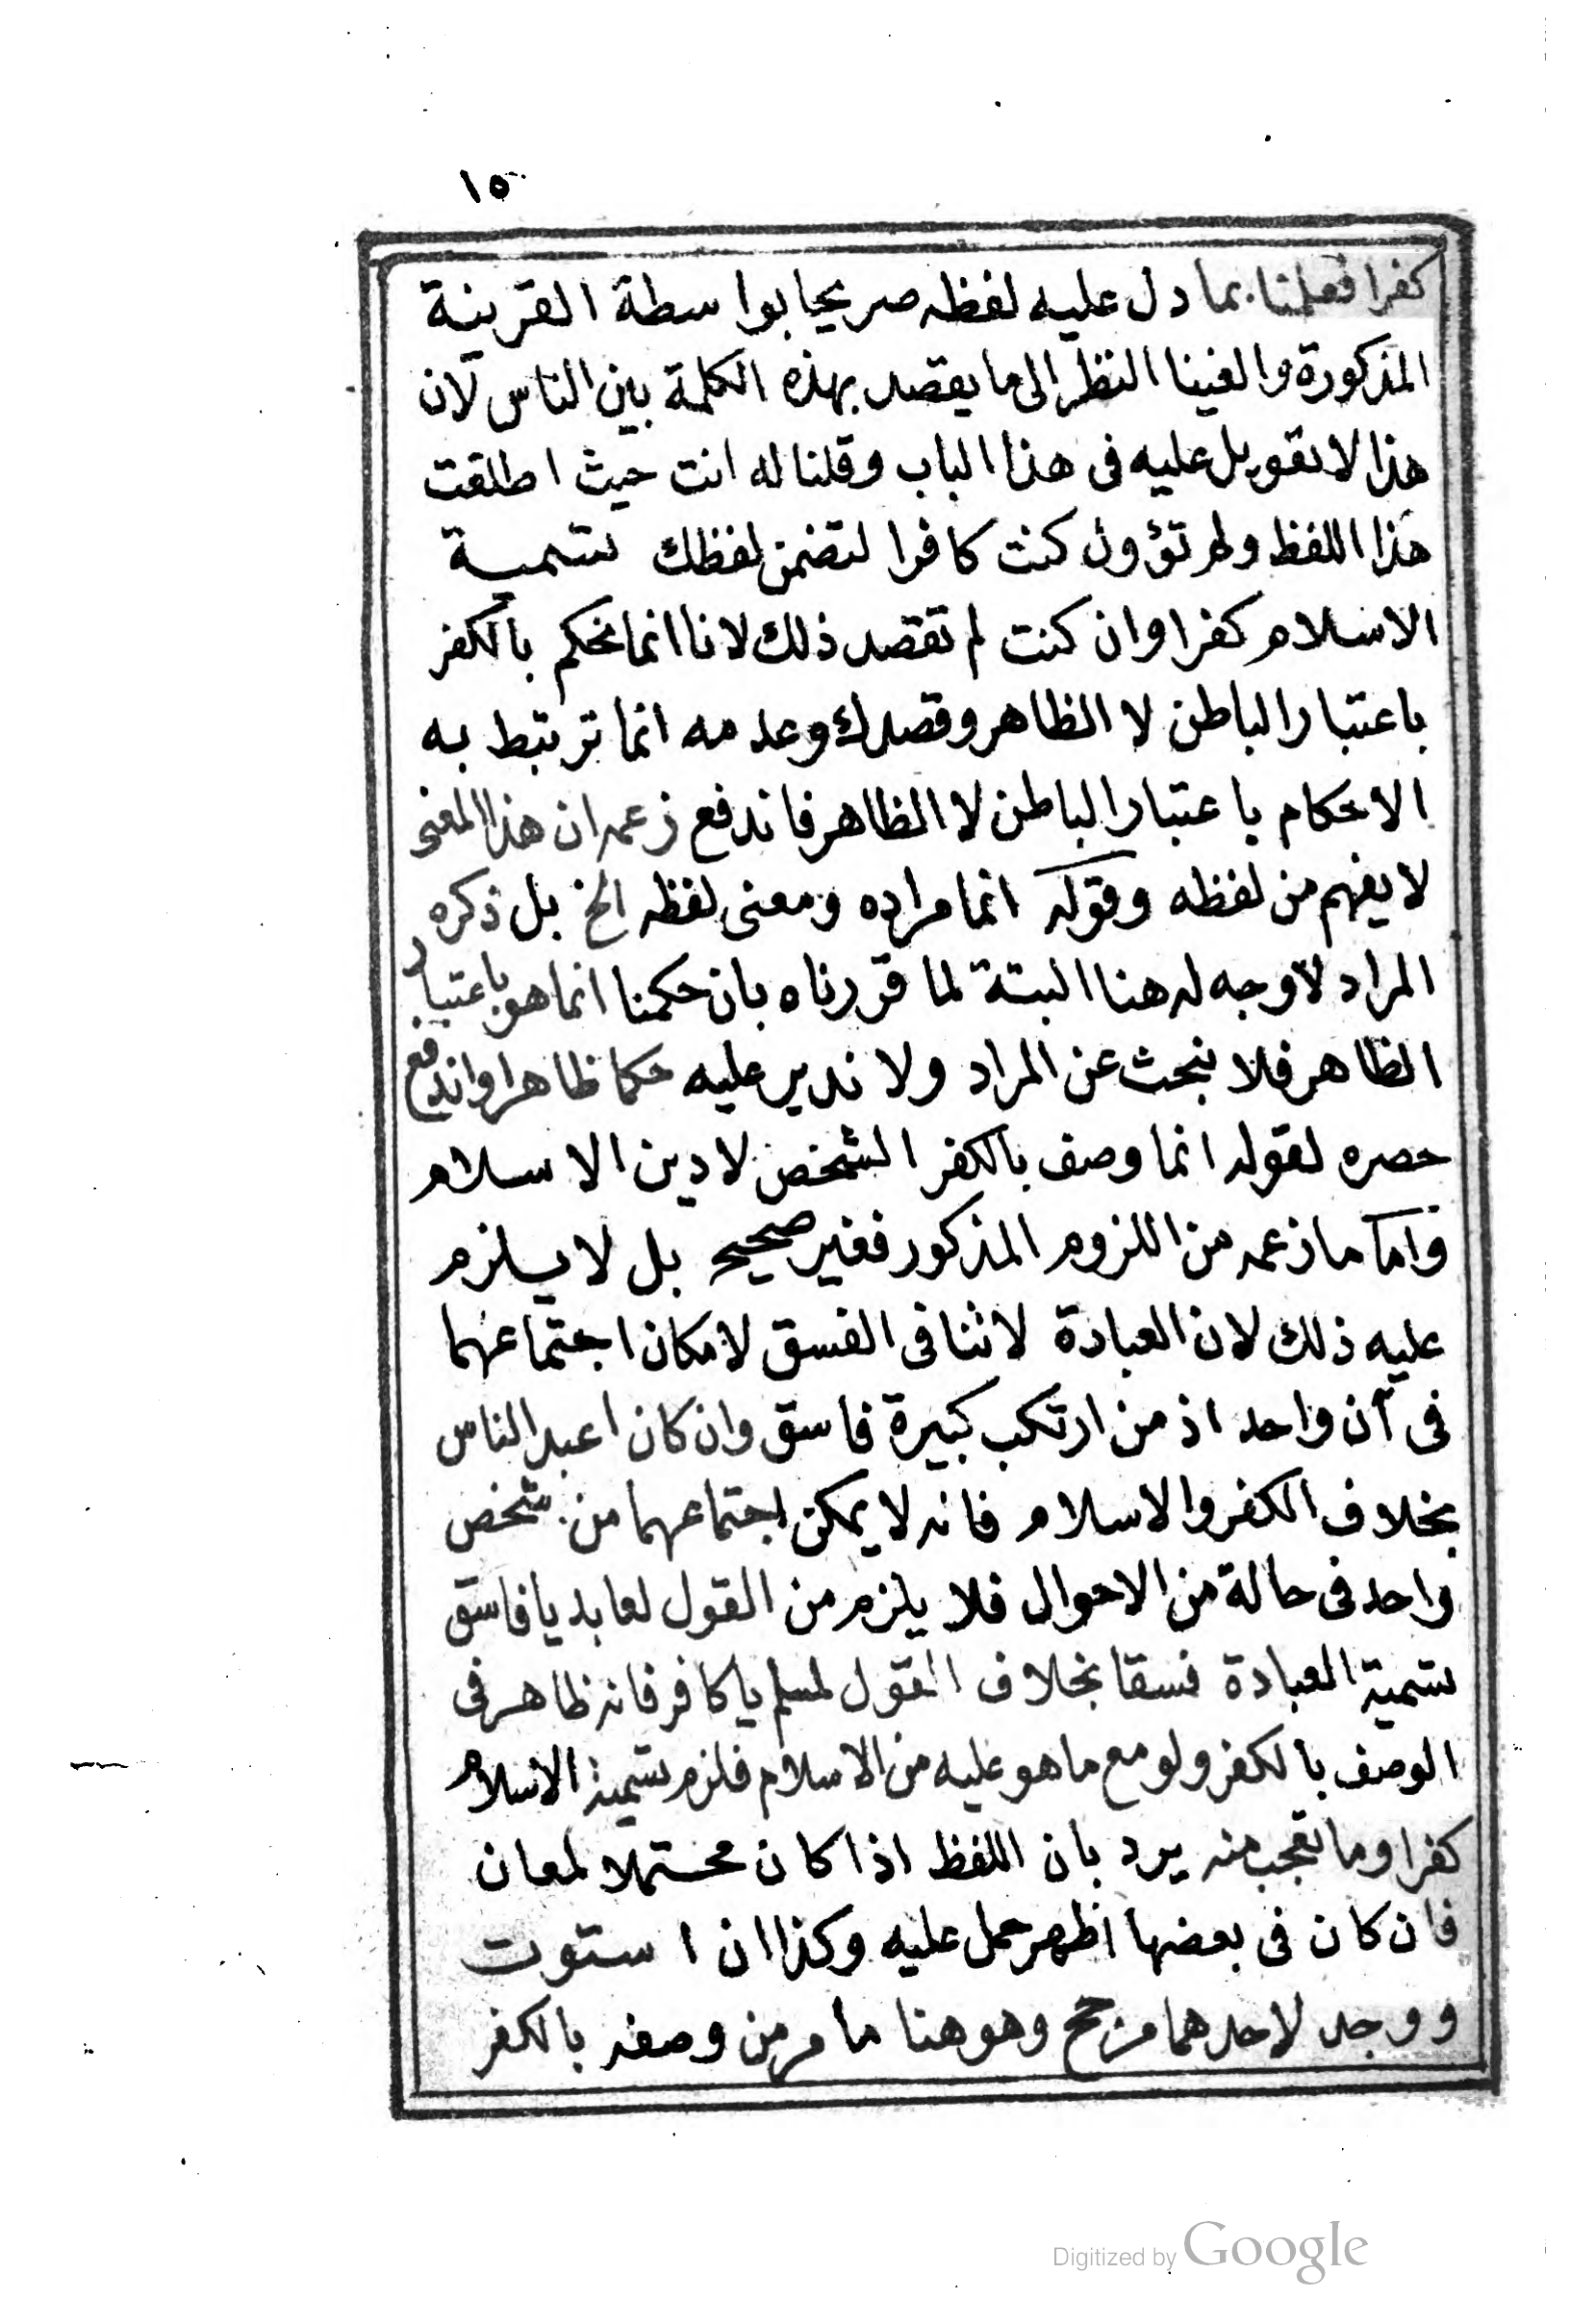 ١٥
كفرا فعلمنا بما دل عليه لفظه صريحا بواسطة القرينة
المذكورة والغينا النظر الى ما يقصد بهذه الكلمة بين الناس لان
هذا لا تعويل عليه فى هذا الباب وقلنا له انت حيث اطلقت
هذا اللفظ ولم تؤول كنت كافرا لتضمن لفظك تسمية
الاسلام كفرا وان كنت لم تقصد ذلك لانا انما نحكم بالكفر
باعتبار الباطن لا الظاهر وقصدك وعدمه انما ترتبط به
الاحكام باعتبار الباطن لا الظاهر فاندفع زعمه ان هذا المعنى
لا يفهم من لفظه وقوله انما مراده ومعنى لفظه الخ بل ذكره
المراد لا وجه له هنا البتة لما قررناه بان حكمنا انما هو باعتبار
الظاهر فلا نبحث عن المراد ولا ندير عليه حكما ظاهرا واندفع
حصره لقوله انما وصف بالكفر الشخص لا دين الاسلام
واما ما زعمه من اللزوم المذكور فغير صحيح بل لا يلزم
عليه ذلك لان العبادة لا تنافى الفسق لامكان اجتماعهما
فى آن واحد اذ من ارتكب كبيرة فاسق وان كان اعبد الناس
بخلاف الكفر والاسلام فانه لا يمكن اجتماعهما من شخص
واحد فى حالة من الاحوال فلا يلزم من القول لعابد يا فاسق
تسمية العبادة فسقا بخلاف القول لمسلم يا كافر فانه ظاهر فى
الوصف بالكفر ولو مع ما هو عليه من الاسلام فلزم تسمية الاسلام
كفرا وما تعجب منه يرد بان اللفظ اذا كان محتملا لمعان
فان كان فى بعضها اظهر حمل عليه وكذا ان استوت
ووجد لاحدهما مرجح وهو هنا ما مر من وصفه بالكفر
Digitized by Google